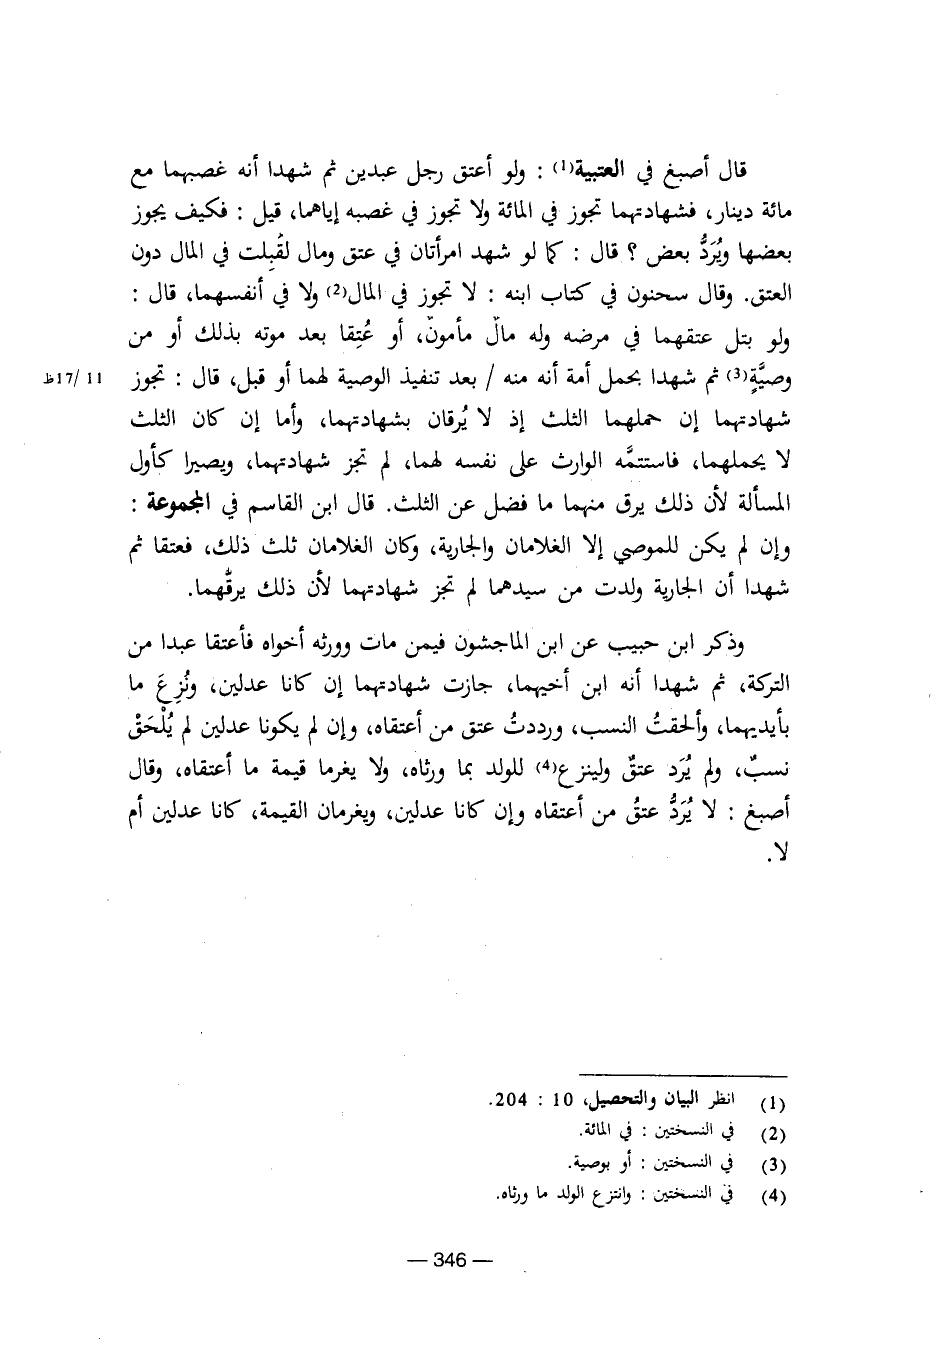 قال أصبغ في العتبية(1) : ولو أعتق رجل عبدين ثم شهدا أنه غصبهما مع
مائة دينار، فشهادتهما تجوز في المائة ولا تجوز في غصبه إياهما، قيل : فكيف يجوز
بعضها ويُرَدُّ بعض ؟ قال : كما لو شهد امرأتان في عتق ومال لقُبِلت في المال دون
العتق. وقال سحنون في كتاب ابنه : لا تجوز في المال(2) ولا في أنفسهما، قال :
ولو بتل عتقهما في مرضه وله مالٌ مأمونٌ، أو عُتِقا بعد موته بذلك أو من
وصيَّةٍ(3) ثم شهدا بحمل أمة أنه منه / بعد تنفيذ الوصية لهما أو قبل، قال : تجوز
11 /17ظ
شهادتهما إن حملهما الثلث إذ لا يُرقان بشهادتهما، وأما إن كان الثلث
لا يحملهما، فاستتمَّه الوارث على نفسه لهما، لم تجز شهادتهما، ويصيرا كأول
المسألة لأن ذلك يرق منهما ما فضل عن الثلث. قال ابن القاسم في المجموعة :
وإن لم يكن للموصي إلا الغلامان والجارية، وكان الغلامان ثلث ذلك، فعتقا ثم
شهدا أن الجارية ولدت من سيدهما لم تجز شهادتهما لأن ذلك يرقُّهما.
وذكر ابن حبيب عن ابن الماجشون فيمن مات وورثه أخواه فأعتقا عبدا من
التركة، ثم شهدا أنه ابن أخيهما، جازت شهادتهما إن كانا عدلين، ونُزِعَ ما
بأيديهما، وألحقتُ النسب، ورددتُ عتق من أعتقاه، وإن لم يكونا عدلين لم يُلْحَقْ
نسبٌ، ولم يُرَد عتقٌ ولينزع(4) للولد بما ورثاه، ولا يغرما قيمة ما أعتقاه، وقال
أصبغ : لا يُرَدُّ عتقُ من أعتقاه وإن كانا عدلين، ويغرمان القيمة، كانا عدلين أم
لا.
(1) انظر البيان والتحصيل، 10 : 204.
(2) في النسختين : في المائة.
(3) في النسختين : أو بوصية.
(4) في النسختين : وانتزع الولد ما ورثاه.
— 346 —